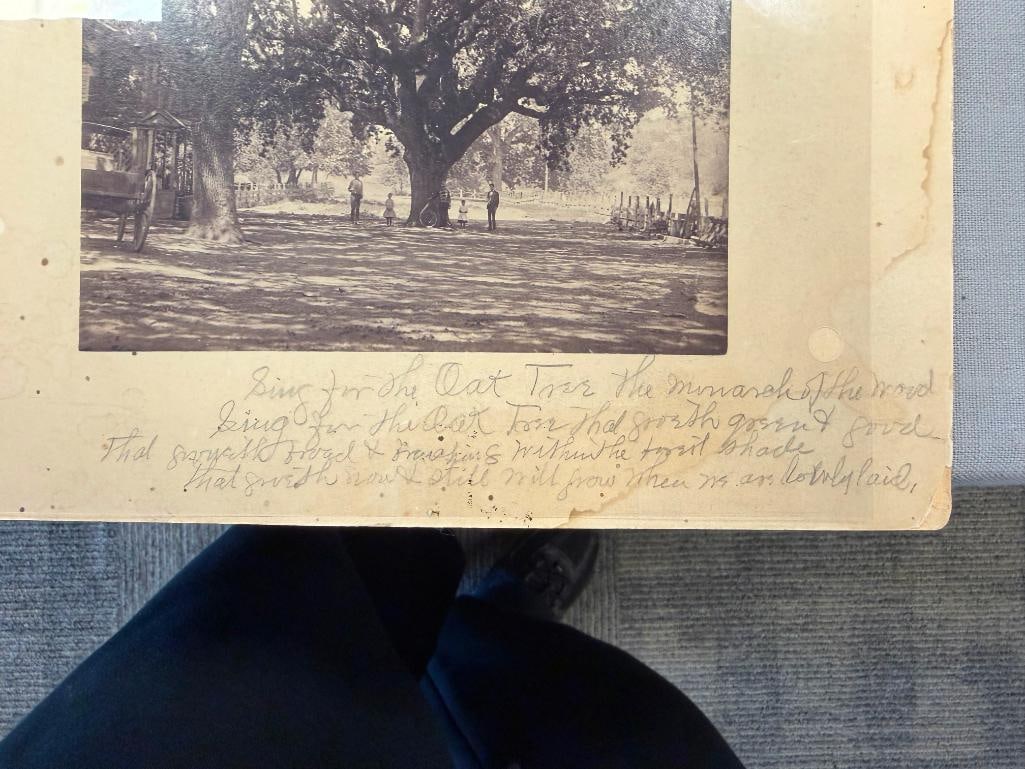 Sing for the Oak Tree the monarch of the wood
Sing for the Oak Tree that groweth green & good
That groweth broad & branching within the forest shade
that groweth now & still will grow when we are lowly laid,